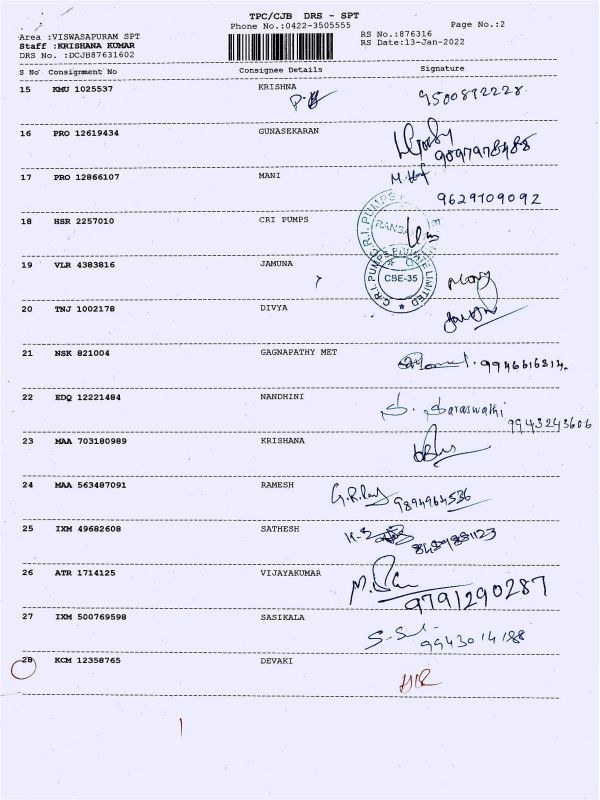 TPC/CJB DRS - SPT
Phone No.:0422-3505555
Page No.:2
Area :VISWASAPURAM SPT
Staff :KRISHANA KUMAR
DRS No. :DCJB87631602
RS No.:876316
RS Date:13-Jan-2022
S No Consignment No Consignee Details Signature
15 KMU 1025537 KRISHNA 9500872228
16 PRO 12619434 GUNASEKARAN
9097978485
17 PRO 12866107 MANI
9629709092
18 HSR 2257010 CRI PUMPS
C.R.I. PUMPS PRIVATE LIMITED
CBE-35
19 VLR 4383816 JAMUNA
20 TNJ 1002178 DIVYA
21 NSK 821004 GAGNAPATHY MET
22 EDQ 12221484 NANDHINI S. Saraswathi
9943243606
23 MAA 703180989 KRISHANA
24 MAA 563487091 RAMESH 9894964536
25 IXM 49682608 SATHESH
26 ATR 1714125 VIJAYAKUMAR
9791290287
27 IXM 500769598 SASIKALA
9943014188
28 KCM 12358765 DEVAKI